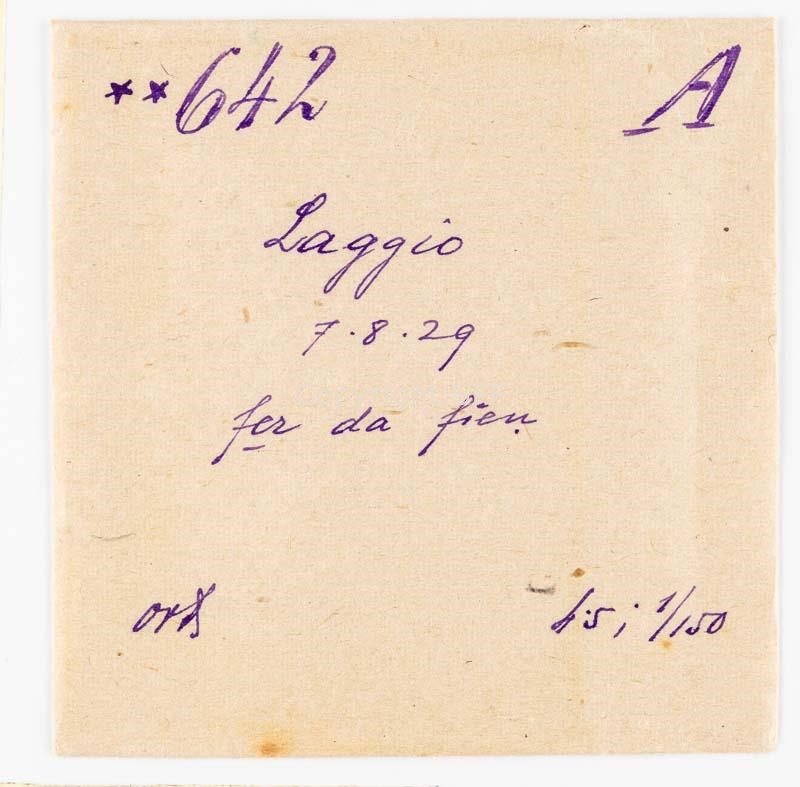 **642 A
Laggio
7.8.29
fer da fieṇ
4.5; 1/150